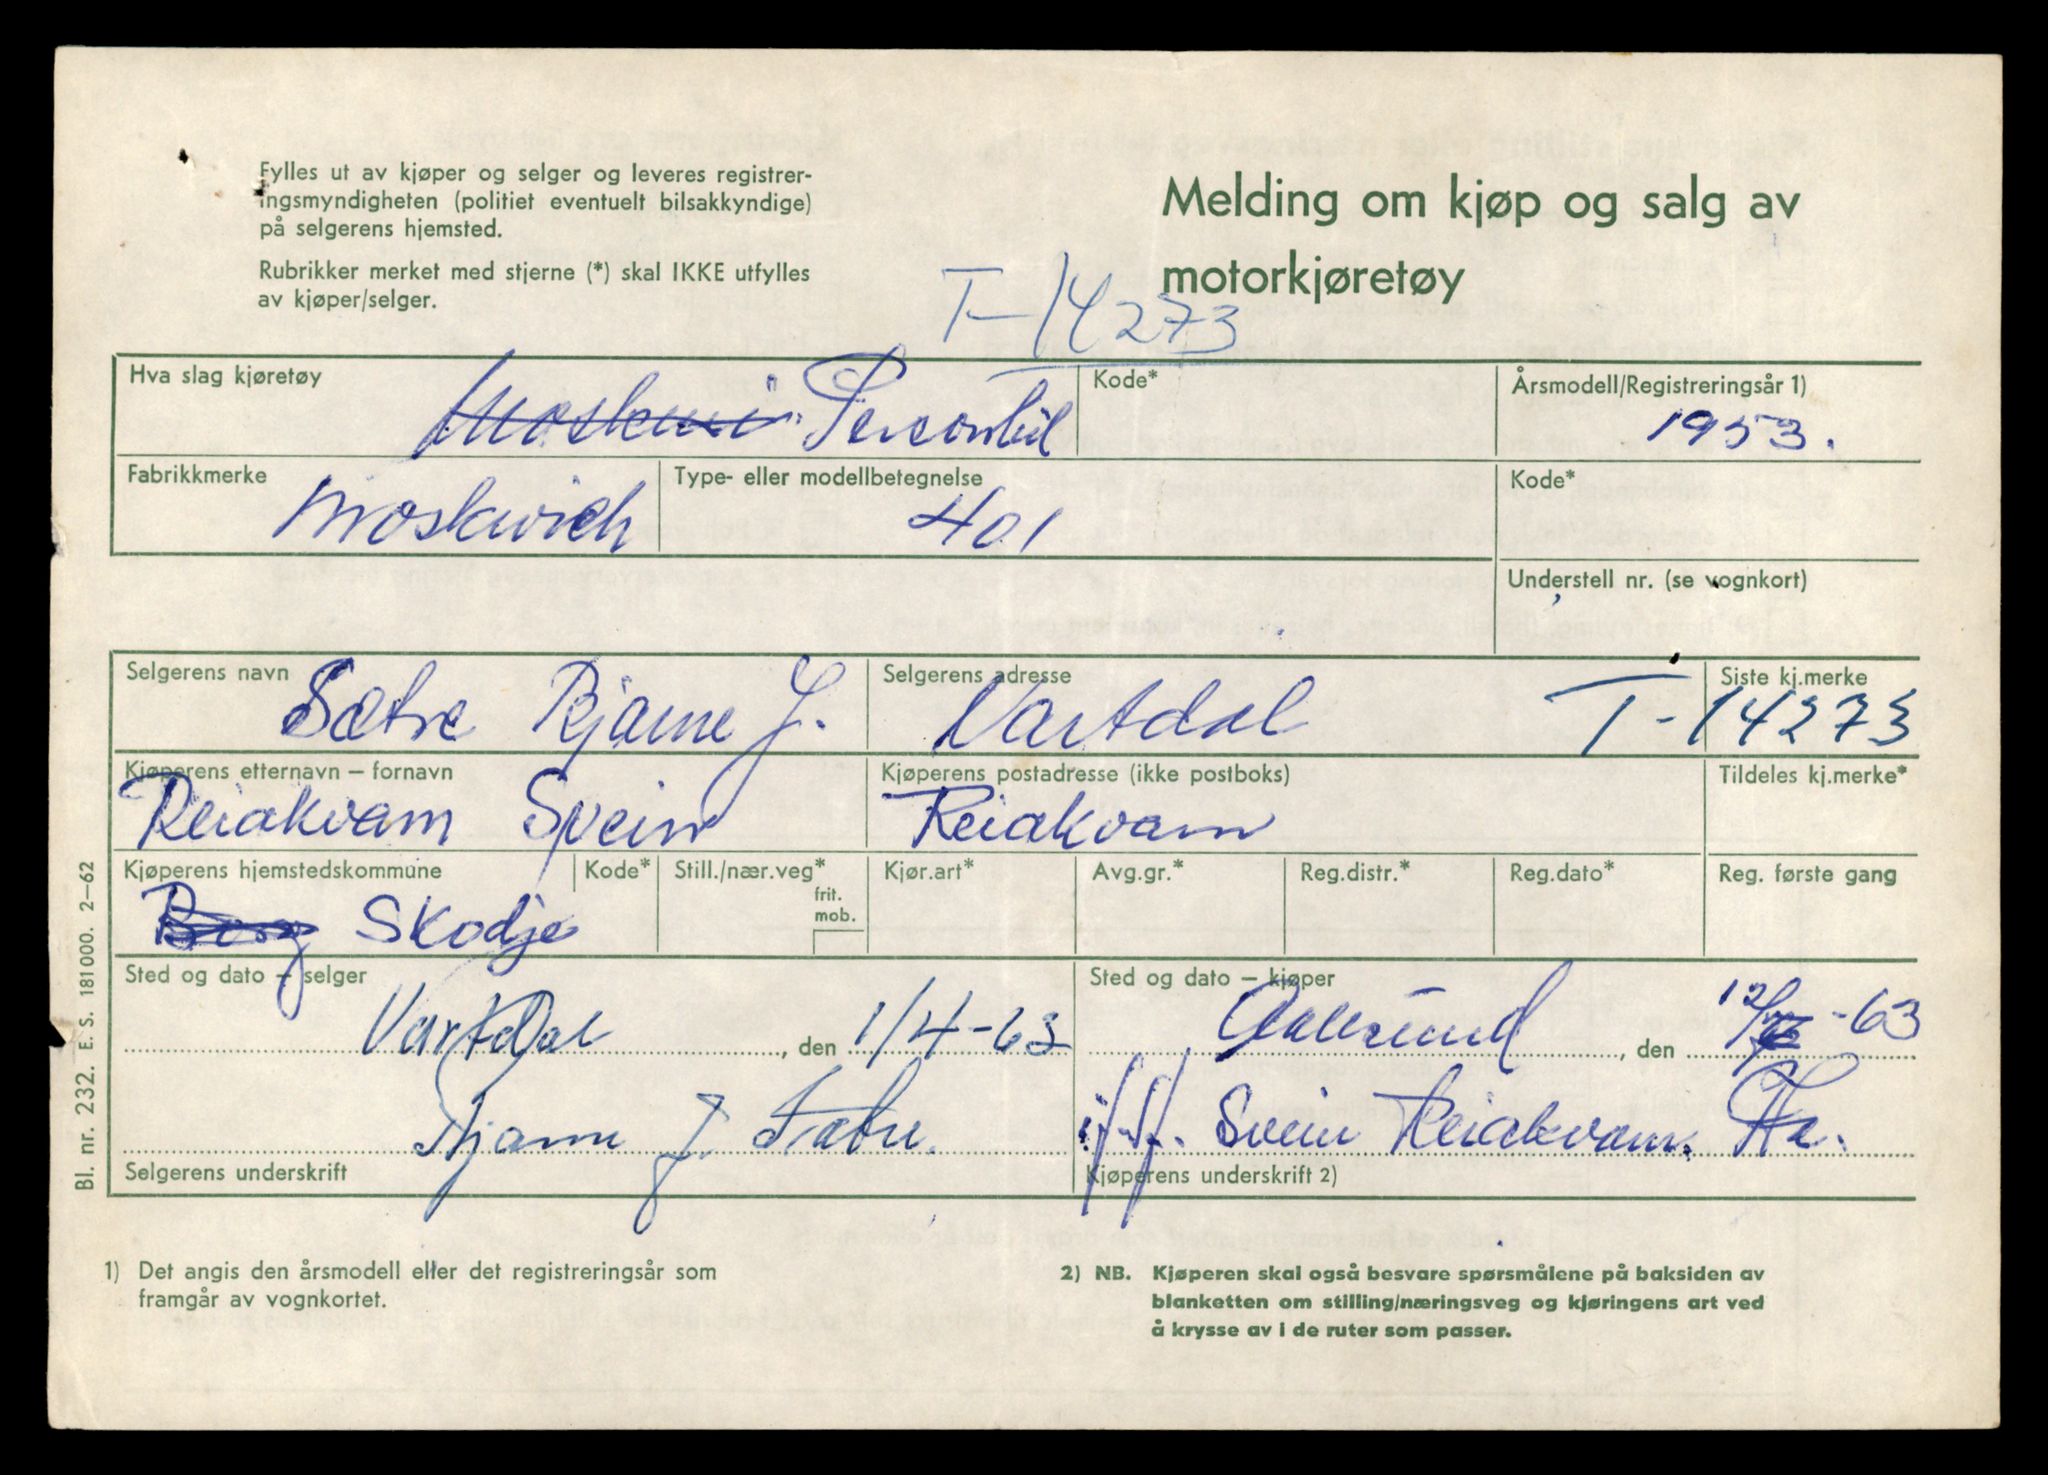 Fylles ut av kjøper og selger og leveres registrer-
ingsmyndigheten (politiet eventuelt bilsakkyndige)
på selgerens hjemsted.
Rubrikker merket med stjerne (*) skal IKKE utfylles
av kjøper/selger.
Melding om kjøp og salg av
motorkjøretøy
T-14273
Hva slag kjøretøy
Personbil
Kode*
Årsmodell/Registreringsår 1)
1953.
Fabrikkmerke
Moskwich
Type- eller modellbetegnelse
401
Kode*
Understell nr. (se vognkort)
Selgerens navn
Sætre Bjarne J.
Selgerens adresse
Vartdal
Siste kj.merke
T-14273
Kjøperens etternavn – fornavn
Reiakvam Svein
Kjøperens postadresse (ikke postboks)
Reiakvam
Tildeles kj.merke*
Kjøperens hjemstedskommune
Borg Skodje
Kode*
Still./nær.veg*
frit.
mob.
Kjør.art*
Avg.gr.*
Reg.distr.*
Reg.dato*
Reg. første gang
Sted og dato – selger
Vartdal, den 1/4-63
Sted og dato – kjøper
Aalesund, den 12/ -63
Bjarne J. Sætre.
Selgerens underskrift
f.f. Svein Reiakvam.
Kjøperens underskrift 2)
1) Det angis den årsmodell eller det registreringsår som
framgår av vognkortet.
2) NB. Kjøperen skal også besvare spørsmålene på baksiden av
blanketten om stilling/næringsveg og kjøringens art ved
å krysse av i de ruter som passer.
Bl. nr. 232. E. S. 181000. 2–62